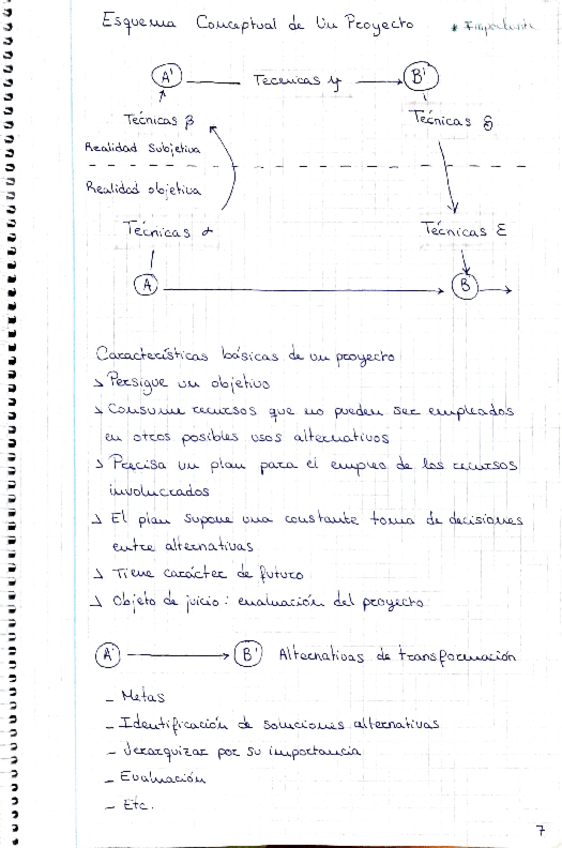 Esquema Conceptual de Un Proyecto * Importante
A' Tecnicas γ B'
Técnicas β Técnicas δ
Realidad Subjetiva
Realidad objetiva
Técnicas α Técnicas ε
A B
Características básicas de un proyecto
↘ Persigue un objetivo
↘ Consume recursos que no pueden ser empleados
en otros posibles usos alternativos
↘ Precisa un plan para el empleo de los recursos
involucrados
↘ El plan supone una constante toma de decisiones
entre alternativas
↘ Tiene carácter de futuro
↘ Objeto de juicio: evaluación del proyecto
A' → B' Alternativas de transformación
- Metas
- Identificación de soluciones alternativas
- Jerarquizar por su importancia
- Evaluación
- Etc.
7